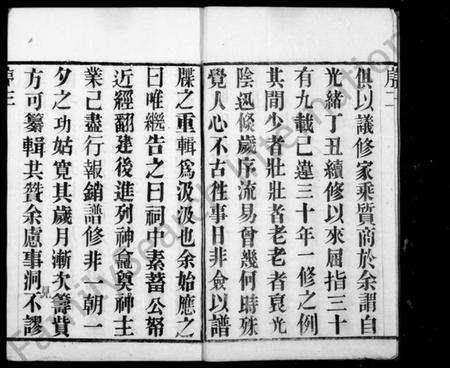 序二
俱以議修家乘質商於余謂自
光緒丁丑續修以來屈指三十
有九載已違三十年一修之例
其間少者壯壯者老老者衰光
陰迅倏歲序流易曾幾何時殊
覺人心不古徃事日非僉以譜
牒之重輯為汲汲也余始應之
曰唯繼告之曰祠中素蓄公帑
近經翻建後進列神龕奠神主
業已盡行報銷譜修非一朝一
夕之功姑寛其歲月漸次籌貲
方可纂輯共贊余慮事洞不謬
見
序三